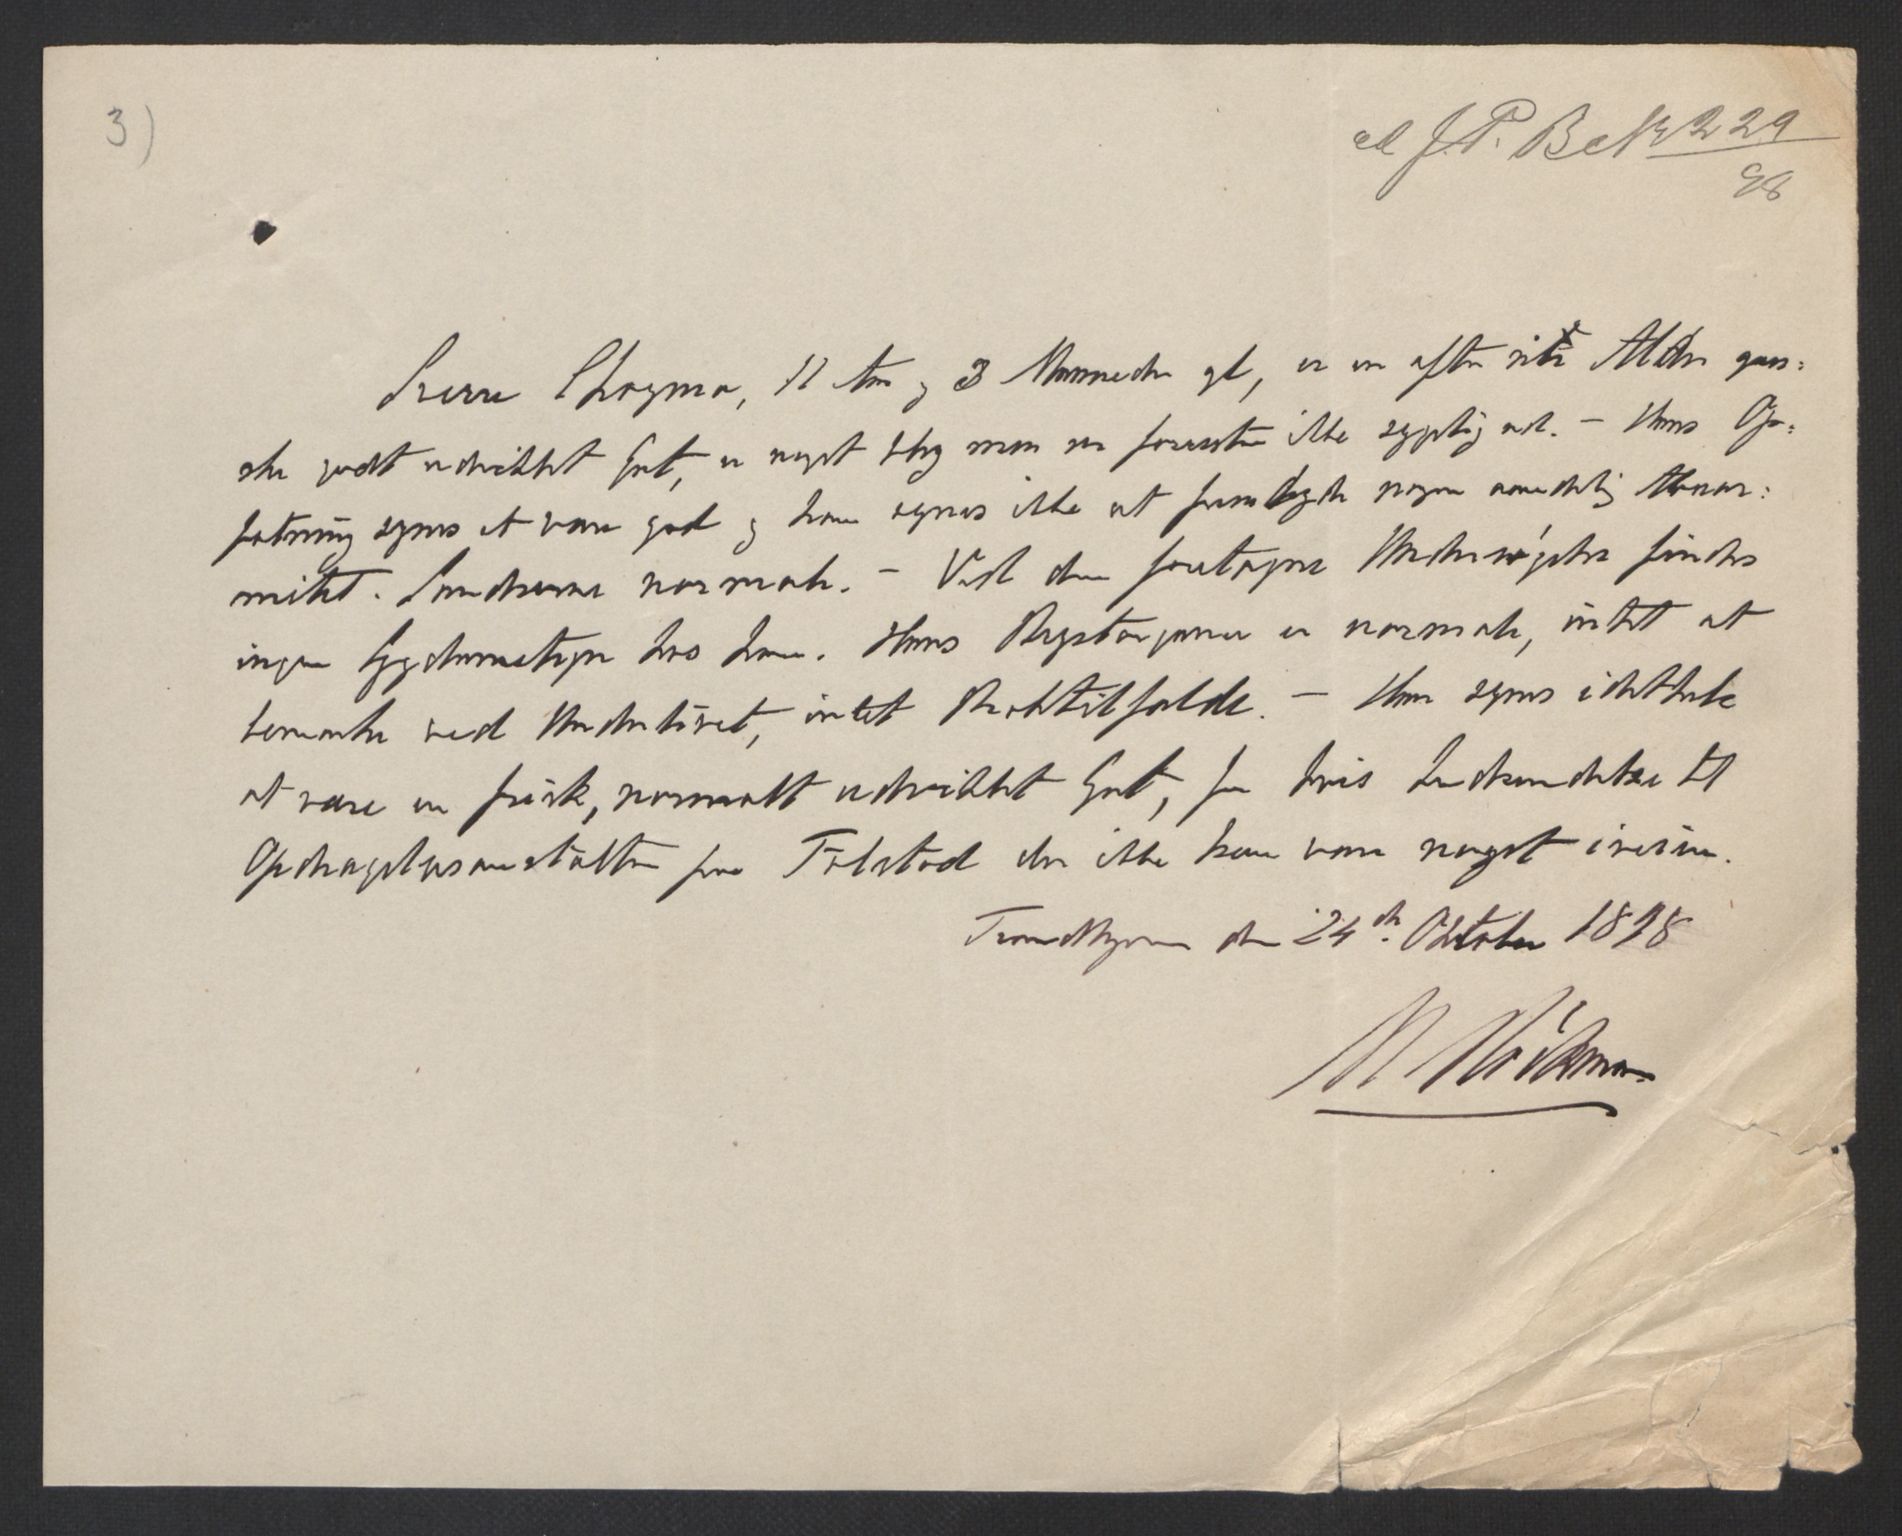 3)
ad J. P. B. No 229
98
Sverre Skogmo, 11 Aar og 3 Maaneder gl, er en efter sin Alder gan:
ske godt udviklet Gut, er noget bleg men ser forresten ikke sygelig ud. – Hans Op:
fatning synes at være god og han synes ikke at frembyde nogen aandelig Abnor:
mitet. Sandserne normale. – Ved den foretagne Undersøgelse findes
ingen Sygdomstegn hos ham. Hans Brystorganer er normale, intet at
bemærke ved Underlivet, intet Broktilfælde. – Han synes i det hele
at være en frisk, normalt udviklet Gut, for hvis Indsendelse til
Opdragelsesanstalten paa Falstad der ikke kan være noget i veien.
Trondhjem den 24de Oktober 1898